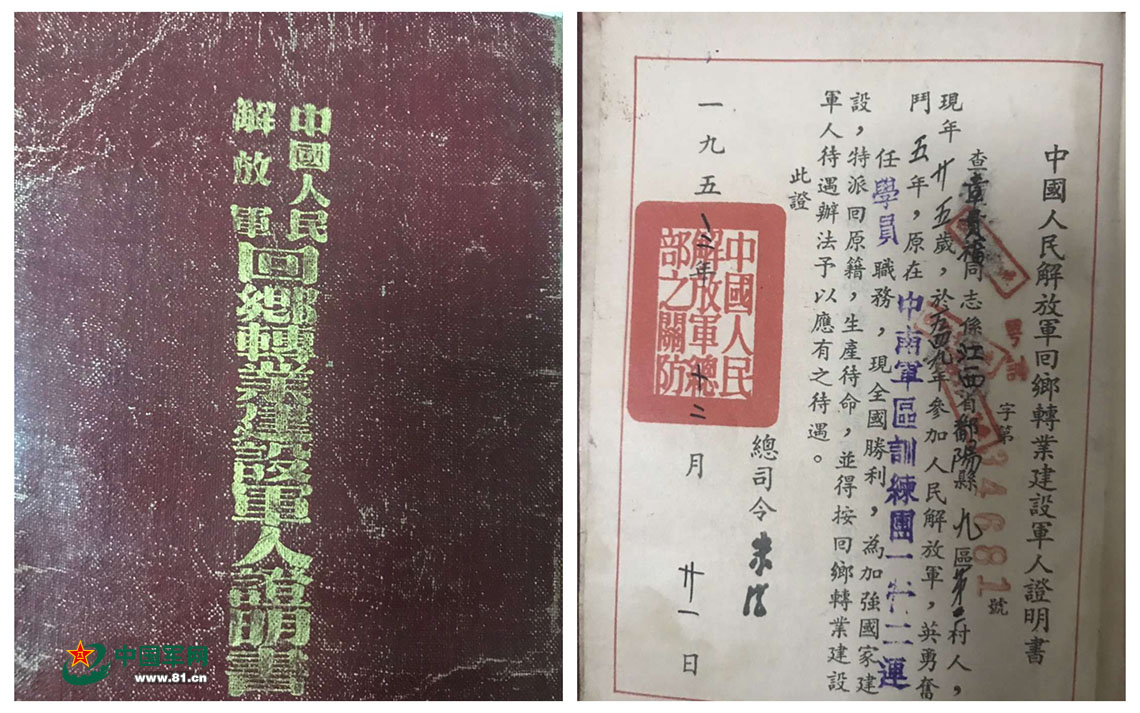 中國人民
解放軍
回鄉轉業建設軍人證明書
中国军网
www.81.cn
中國人民解放軍回鄉轉業建設軍人證明書
字第34681號
查同志係江西省鄱陽縣九區第村人，
現年廿五歲，於一九四九年參加人民解放軍，英勇奮
鬥五年，原在中南軍區訓練團一二連
任學員職務，現全國勝利，為加強國家建
設，特派回原籍，生產待命，並得按回鄉轉業建設
軍人待遇辦法予以應有之待遇。
此證
總司令 朱德
中國人民
解放軍總
部之關防
一九五三年十二月廿一日